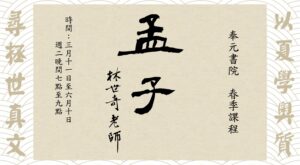 以夏學奧質
奉元書院 春季課程
孟子
林世奇老師
時間：三月十一日至六月十日
週二晚間七點至九點
尋拯世真文